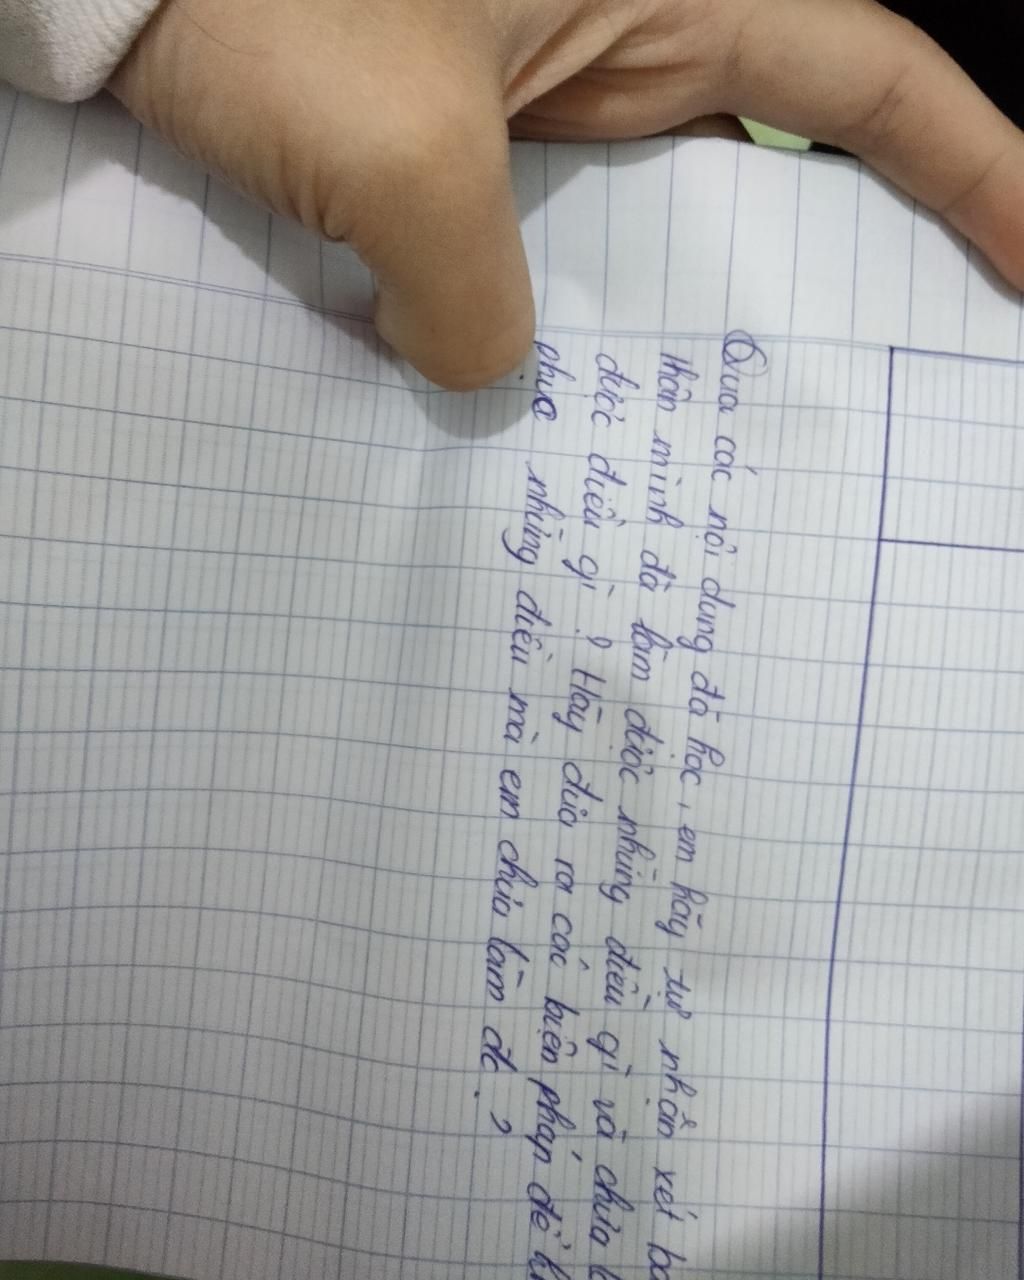 Qua các nội dung đã học, em hãy tự nhận xét
thân mình đã làm được những điều gì và chưa
được điều gì ? Hãy đưa ra các biện pháp để
phục những điều mà em chưa làm đc ?